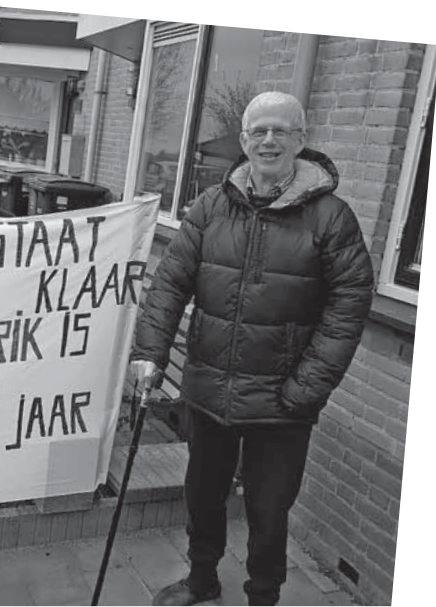 STAAT
KLAAR
RiK IS
jAAR